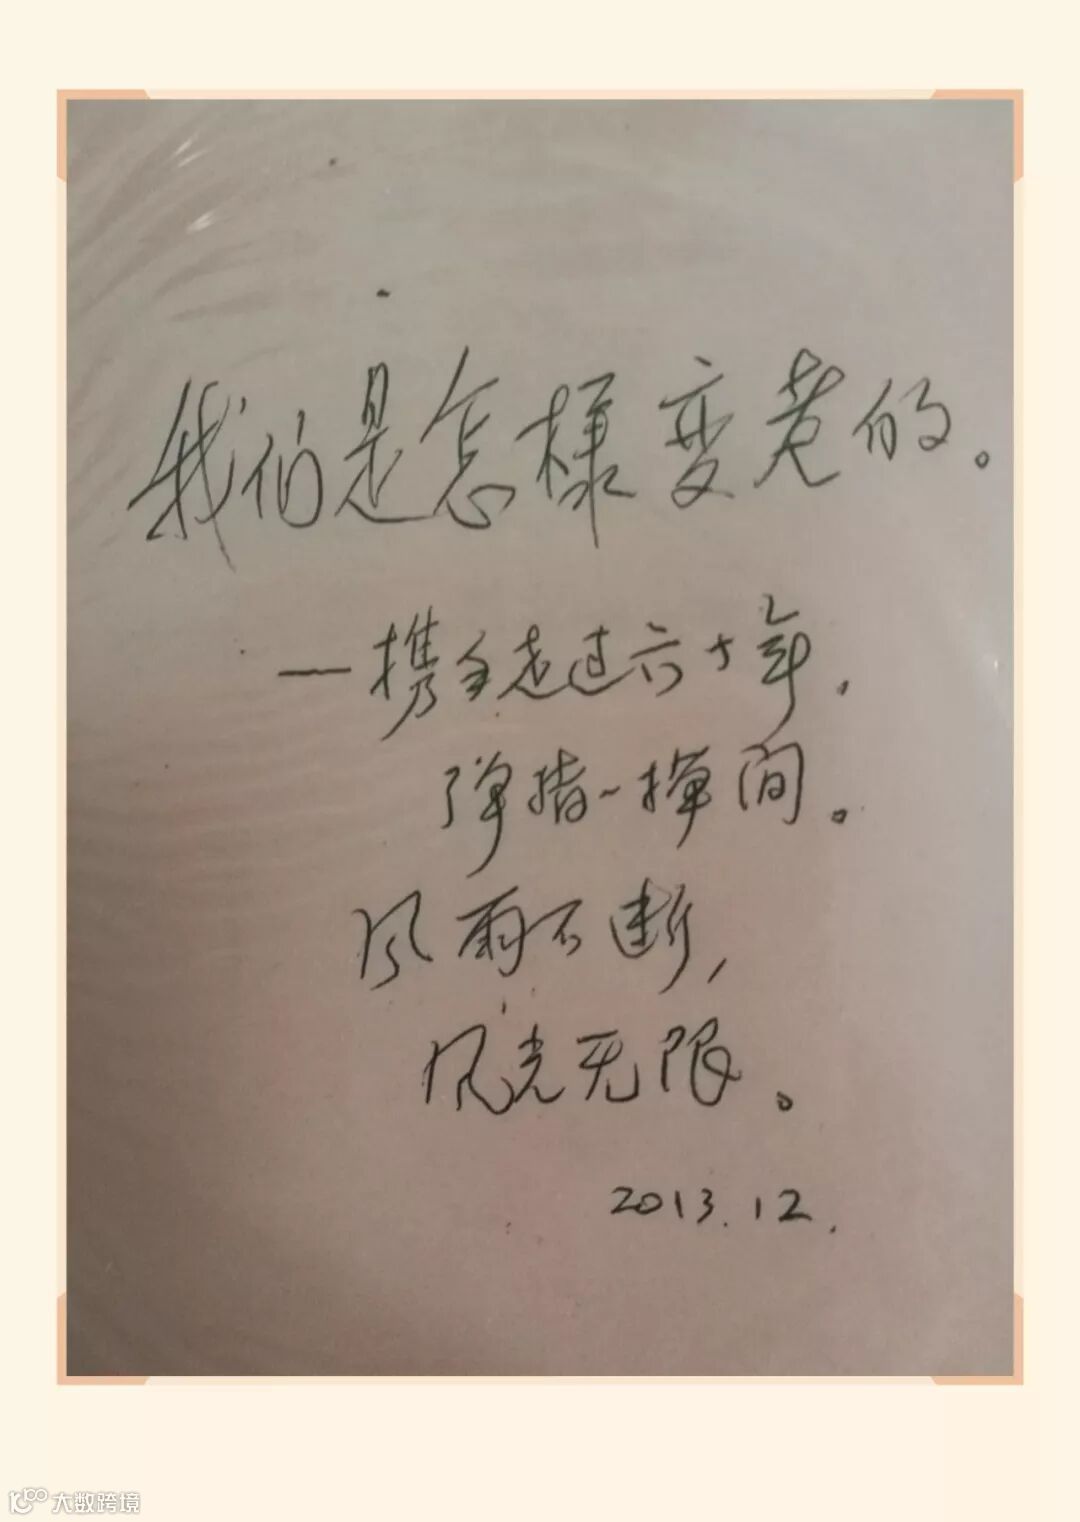 我们是怎樣变老的。
一携手走过六十年，
弹指一挥间。
风雨不断，
风光无限。
2013.12.
大数跨境